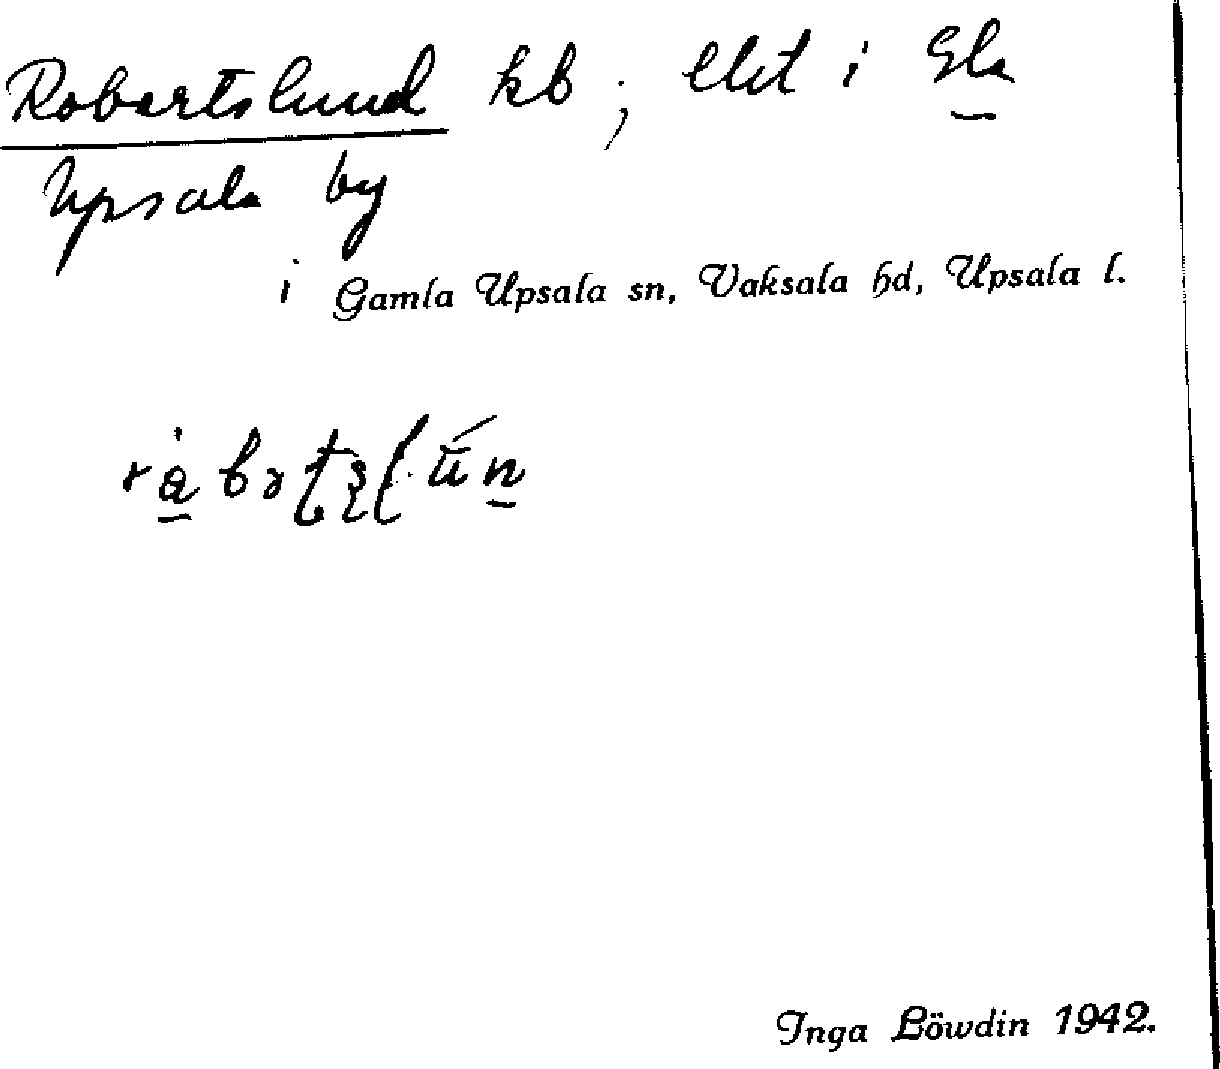 Robertslund kb; i Gla
Upsala by
i Gamla Upsala sn, Vaksala hd, Upsala l.
Inga Löwdin 1942.